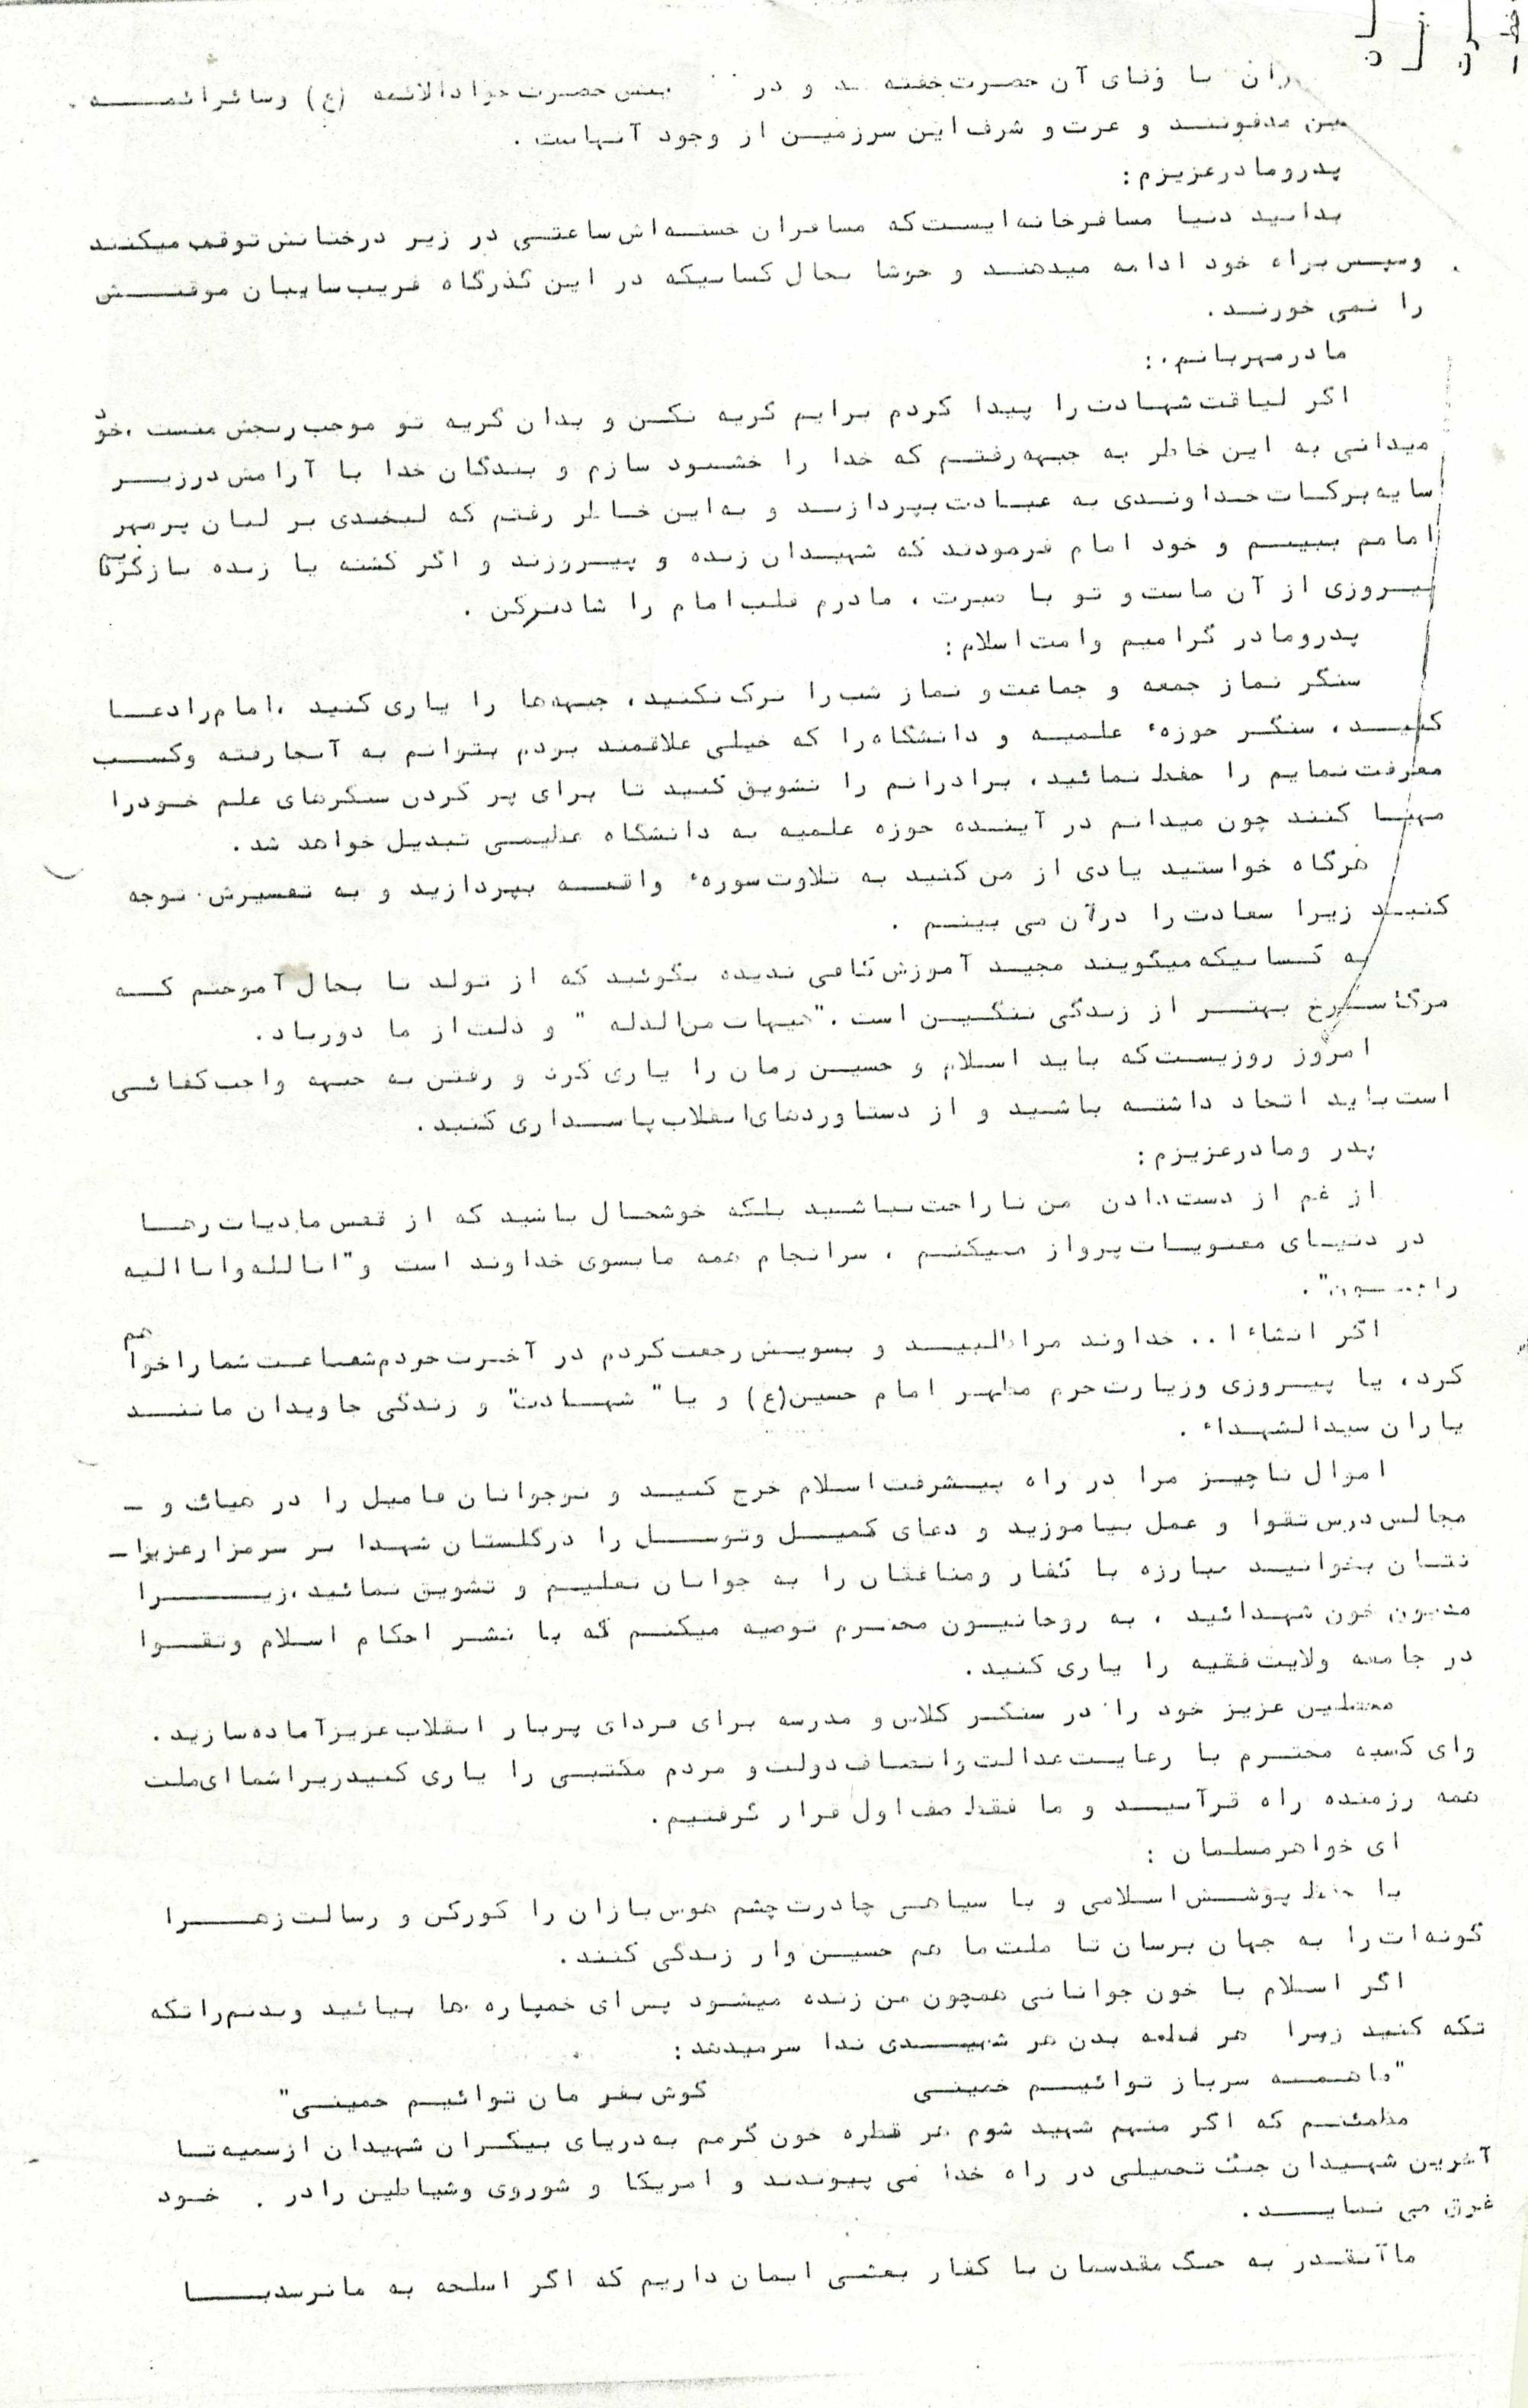 ران با وفای آن حضرت خفته ند و در بینش حضرت جوادالائمه (ع) وسائرائمه
مدفونند و عزت و شرف این سرزمین از وجود آنهاست .
پدرومادرعزیزم :
بدانید دنیا مسافرخانه ایست که مسافران خسته اش ساعتی در زیر درختانش توقف میکنند
وسپس براه خود ادامه میدهند و خوشا بحال کسانیکه در این گذرگاه فریب سایبان موقتش
را نمی خورند .
مادرمهربانم . :
اگر لیاقت شهادت را پیدا کردم برایم گریه نکن و بدان گریه تو موجب رنجش منست ، خود
میدانی به این خاطر به جبهه رفتم که خدا را خشنود سازم و بندگان خدا با آرامش درزیر
سایه برکات خداوندی به عبادت بپردازند و به این خاطر رفتم که لبخندی بر لبان پرمهر
امامم ببینم و خود امام فرمودند که شهیدان زنده و پیروزند و اگر کشته یا زنده بازگردیم
پیروزی از آن ماست و تو با صبرت ، مادرم قلب امام را شادترکن .
پدرومادر گرامیم وامت اسلام :
سنگر نماز جمعه و جماعت و نماز شب را ترک نکنید ، جبهه ها را یاری کنید ، امام را دعا
کنید ، سنگر حوزهٔ علمیه و دانشگاه را که خیلی علاقمند بودم بتوانم به آنجا رفته وکسب
معرفت نمایم را حفظ نمائید ، برادرانم را تشویق کنید تا برای پر کردن سنگرهای علم خودرا
مهیا کنند چون میدانم در آینده حوزه علمیه به دانشگاه عظیمی تبدیل خواهد شد .
هرگاه خواستید یادی از من کنید به تلاوت سورهٔ واقعه بپردازید و به تفسیرش توجه
کنید زیرا سعادت را درآن می بینم .
به کسانیکه میگویند مجید آموزش کافی ندیده بگوئید که از تولد تا بحال آموختم که
مرگ سرخ بهتر از زندگی ننگین است . "هیهات من الذله " و ذلت از ما دورباد .
امروز روزیست که باید اسلام و حسین زمان را یاری کرد و رفتن به جبهه واجب کفائی
است باید اتحاد داشته باشید و از دستاوردهای انقلاب پاسداری کنید .
پدر ومادرعزیزم :
از غم از دست دادن من ناراحت نباشید بلکه خوشحال باشید که از قفس مادیات رها
در دنیای معنویات پرواز میکنم ، سرانجام همه ما بسوی خداوند است و "انالله وانا الیه
راجعون" .
اگر انشاء ا.. خداوند مرا طلبید و بسویش رجعت کردم در آخرت خودم شفاعت شما را خواهم
کرد ، یا پیروزی وزیارت حرم مطهر امام حسین (ع) و یا " شهادت" و زندگی جاویدان مانند
یاران سیدالشهداء .
اموال ناچیز مرا در راه پیشرفت اسلام خرج کنید و نوجوانان فامیل را در هیات و -
مجالس درس تقوا و عمل بیاموزید و دعای کمیل وتوسل را درگلستان شهدا بر سرمزارعزیزا -
نتان بخوانید مبارزه با کفار ومنافقان را به جوانان تعلیم و تشویق نمائید ، زیرا
مدیون خون شهدائید ، به روحانیون محترم توصیه میکنم که با نشر احکام اسلام وتقوا
در جامعه ولایت فقیه را یاری کنید .
محصلین عزیز خود را در سنگر کلاس و مدرسه برای فردای پربار انقلاب عزیز آماده سازید .
وای کسبه محترم با رعایت عدالت وانصاف دولت و مردم مکتبی را یاری کنید زیرا شما ای ملت
همه رزمنده راه قرآنید و ما فقط صف اول قرار گرفتیم .
ای خواهرمسلمان :
با حفظ پوشش اسلامی و با سیاهی چادرت چشم هوس بازان را کورکن و رسالت زهرا
گونه ات را به جهان برسان تا ملت ما هم حسین وار زندگی کنند .
اگر اسلام با خون جوانانی همچون من زنده میشود پس ای خمپاره ها بیائید وبدنم را تکه
تکه کنید زیرا هر قطعه بدن هر شهیدی ندا سرمیدهد :
"ماهمه سرباز توائیم خمینی گوش بفر مان توائیم خمینی"
مطمئنم که اگر منهم شهید شوم هر قطره خون گرمم به دریای بیکران شهیدان از سمیه تا
آخرین شهیدان جنگ تحمیلی در راه خدا می پیوندند و امریکا و شوروی وشیاطین را در . خود
غرق می نماید .
ما آنقدر به جنگ مقدسمان با کفار بعثی ایمان داریم که اگر اسلحه به ما نرسد با